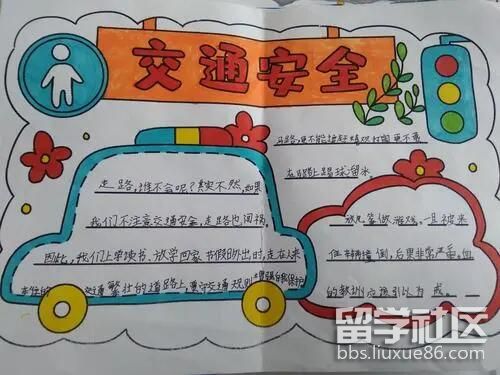 交通安全
马路,更不能追赶嬉戏打闹更不要
在马路上踢球溜冰
走路,谁不会呢?其实不然,如果
我们不注意交通安全,走路也闯祸。
因此,我们上学读书、放学回家、节假日外出时,走在人来
车往的 交通繁忙的道路上,遵守交通规则增强自我保护
或儿童做游戏。一旦被来
往车辆撞倒,后果非常严重。血
的教训应该引以为戒。
留学社区
bbs.liuxue86.com